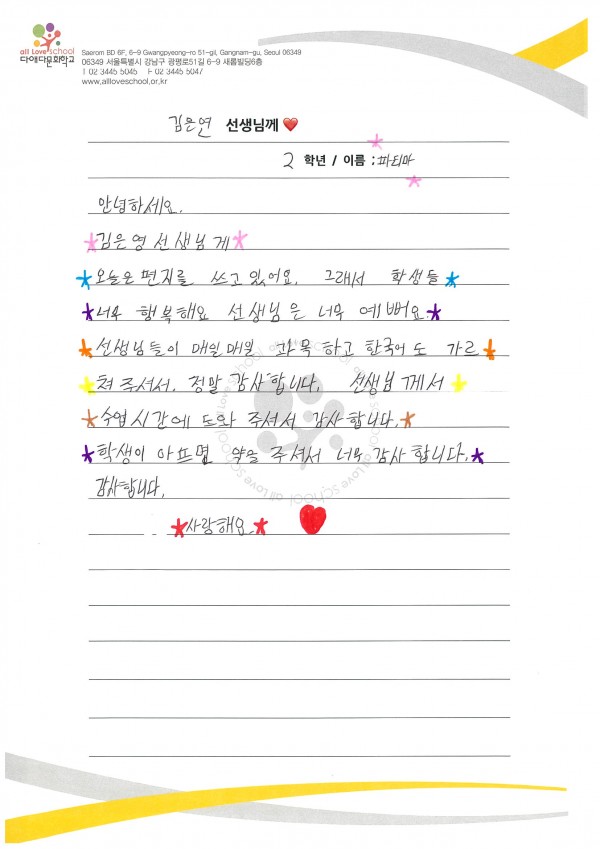 all Love school
다애다문화학교
Saerom BD 6F, 6-9 Gwangpyeong-ro 51-gil, Gangnam-gu, Seoul 06349
06349 서울특별시 강남구 광평로51길 6-9 새롬빌딩6층
T 02 3445 5045 F 02 3445 5047
www.allloveschool.or.kr
김은연 선생님께
2 학년 / 이름 : 파티마
안녕하세요.
김은영 선생님 게
오늘은 편지를 쓰고 있어요. 그래서 학생들
너무 행복해요 선생님은 너무 예뻐요.
선생님들이 매일매일 과목 하고 한국어 도 가르
쳐 주셔서. 정말 감사합니다. 선생님 께서
수업 시간에 도와 주셔서 감사합니다.
학생이 아프몀 약을 주셔서 너무 감사합니다.
감사합니다.
사랑해요